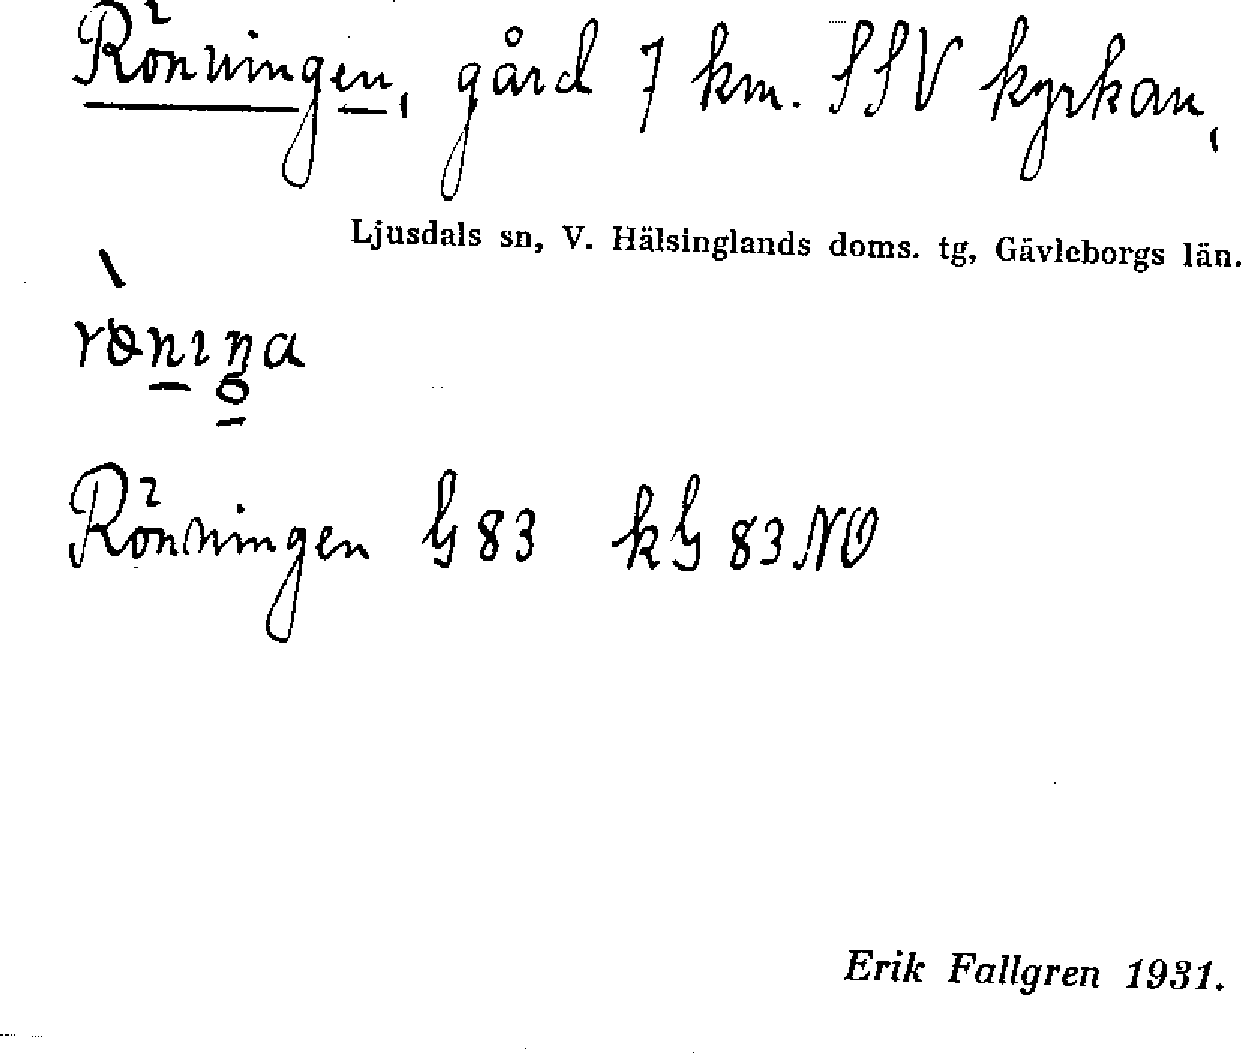 Rönningen, gård 7 km. SSV kyrkan,
Ljusdals sn, V. Hälsinglands doms. tg, Gävleborgs län.
Rönningen G 83 kG 83 NO
Erik Fallgren 1931.